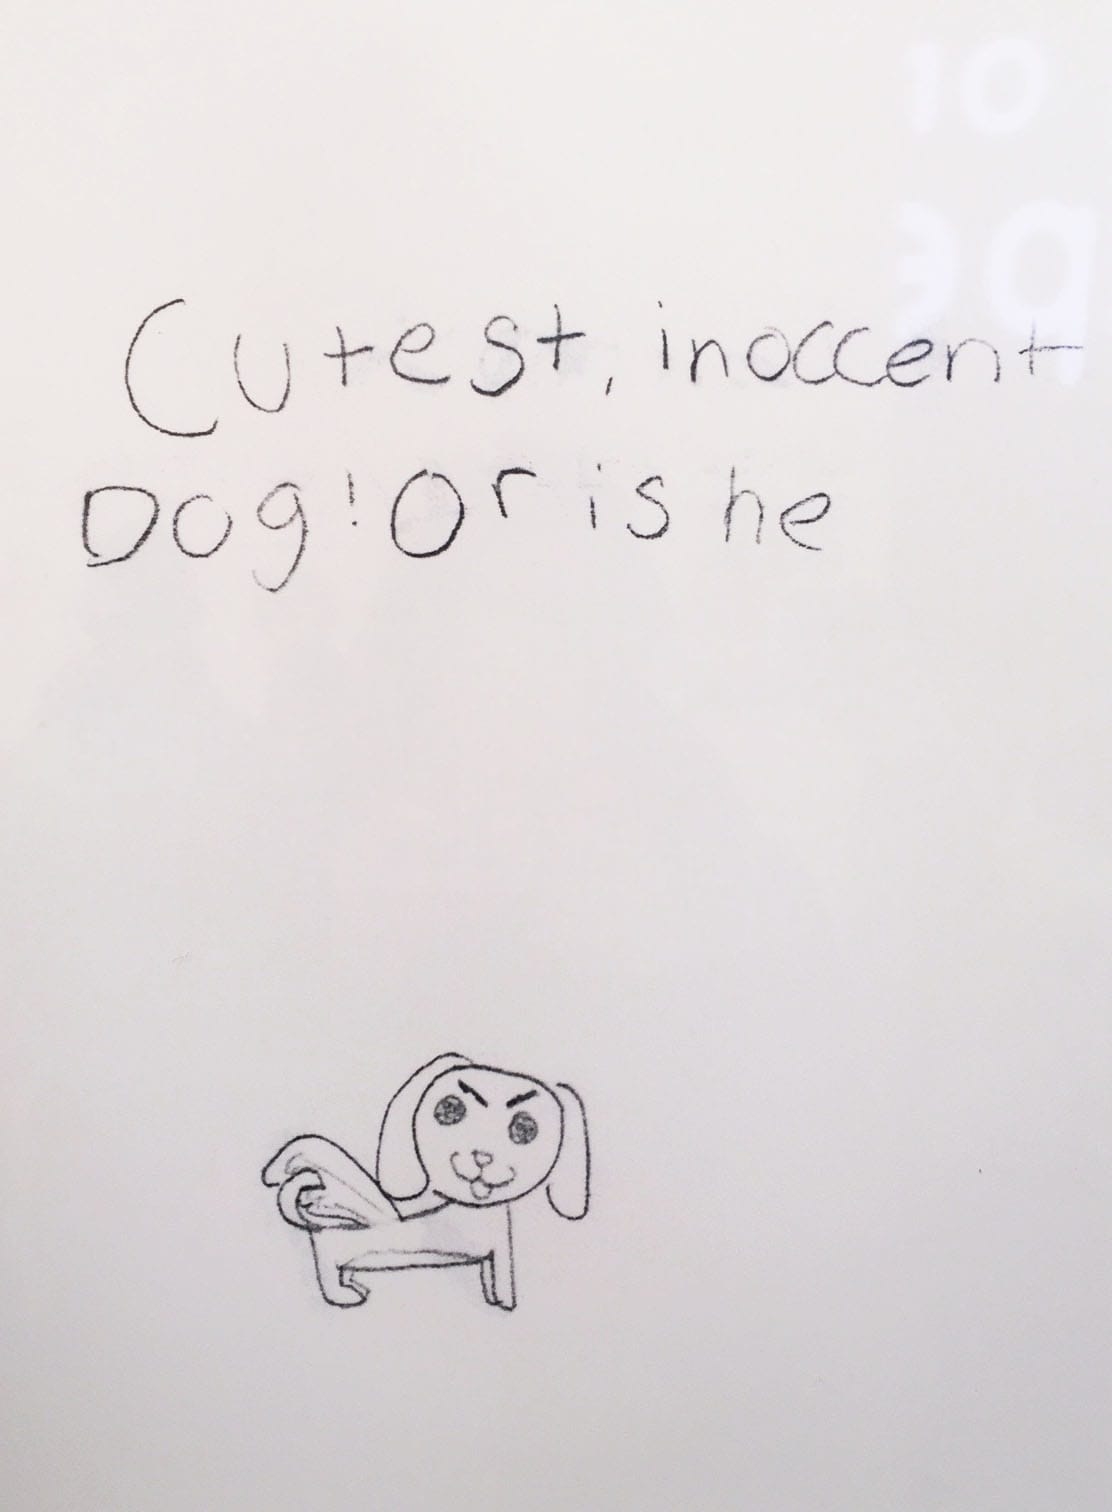 Cutest, inoccent
Dog! Or is he